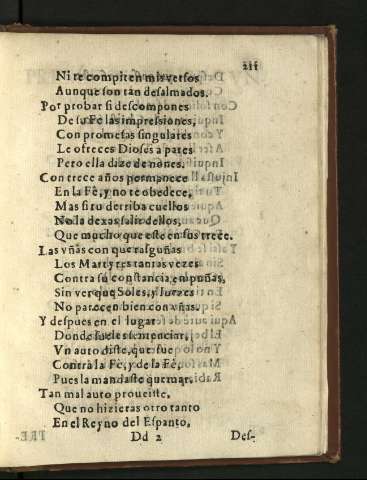 211
Ni te compiten mis versos
Aunque son tan desalmados.
Por probar si descompones
De su Fè las impresiones,
Con promesas singulares
Le ofreces Dioses a pares
Pero ella dize de nones.
Con trece años permanece
En la Fê, y no te obedece,
Mas si tu derriba cuellos
No la dexas salir dellos,
Que mucho que este en sus trece.
Las vñas con que rasguñas
Los Martyres tantas vezes
Contra su constancia empuñas,
Sin ver que Soles, y
No parecen bien con vñas.
Y despues en el lugar
Donde sueles sentenciar,
Vn auto diste, que fue
Contra la Fé, y de la Fé,
Pues la mandaste quemar.
Tan mal auto proueiste,
Que no hizieras otro tanto
En el Reyno del Espanto,
Dd 2 Des-